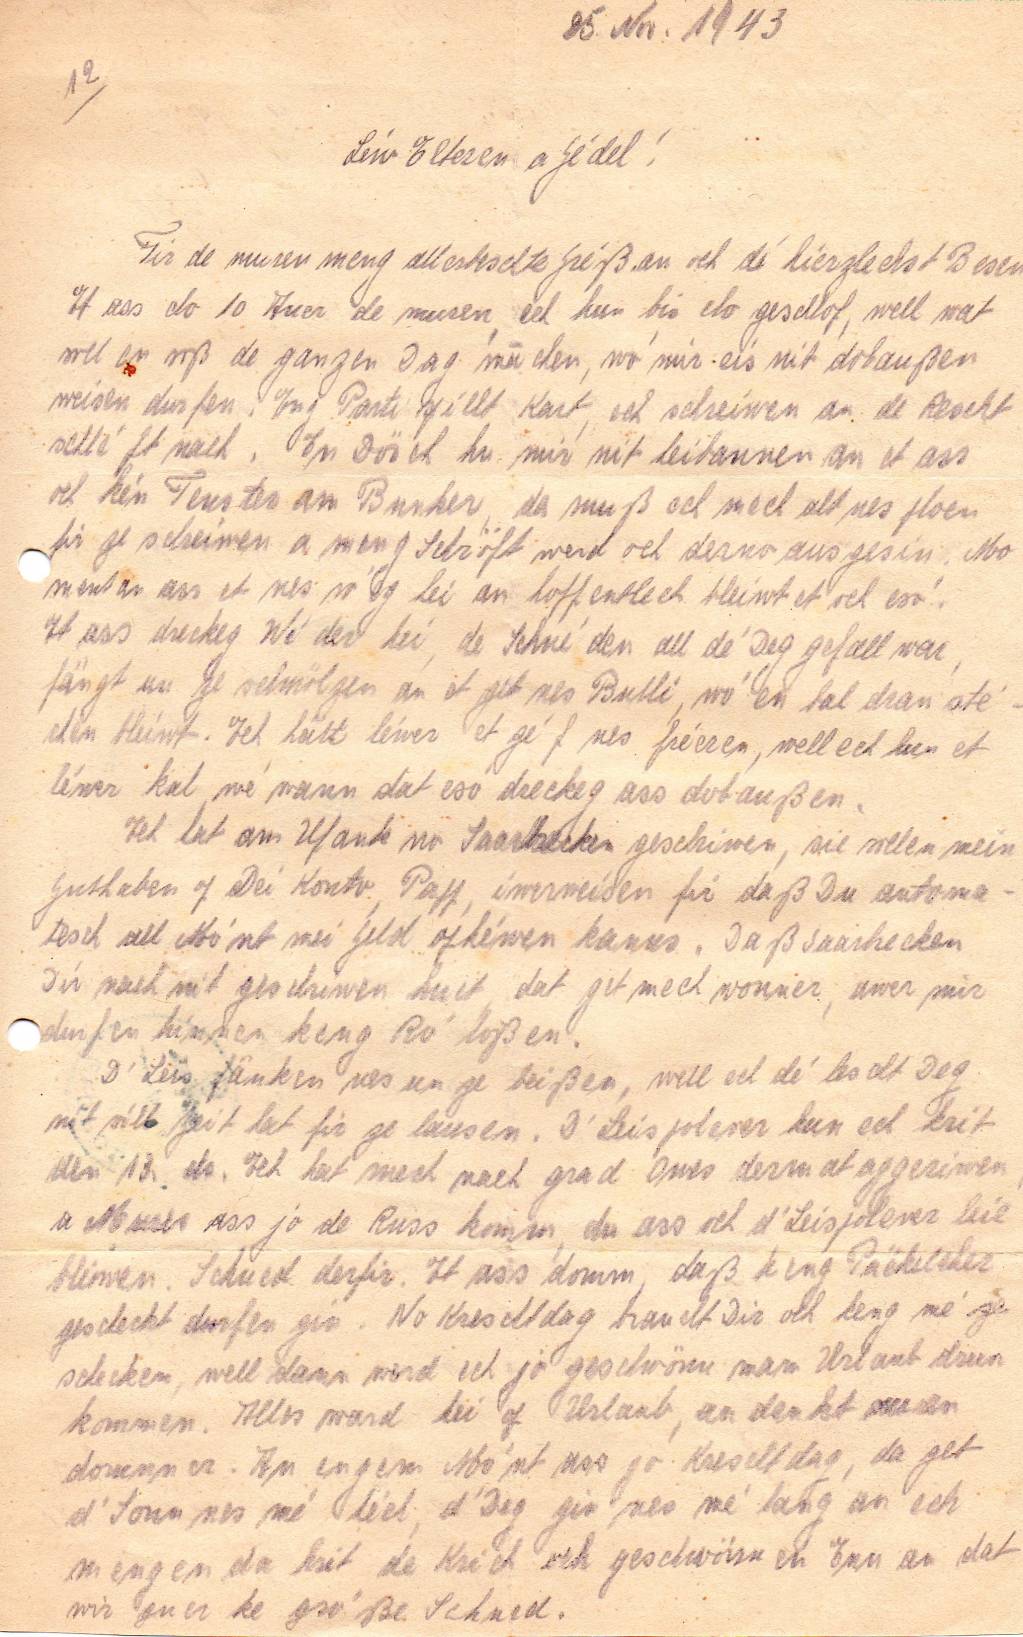 25. Nov. 1943
12/
Léiw Elteren a Jédel!
Fir de muren meng allerbeschte Gréiß an och dé hierzlechst Besen
Et ass do 10 Auer de muren, ech hun bis elo geschlof, well wat
well en och de ganzen Dag machen, wó mir eis nit dobaußen
weisen durfen. Eng Parti spillt Kart, och schreiwen an de Rescht
schléift nach. En Döösch hu mir nit heibannen an et ass
och kén Fenster am Bunker, da muß ech mech alt nes ploen
fir ze schreiwen a meng Schröft werd och derno ausgesin. Mo
mentan ass et nes róeg hei an hoffentlech bleiwt et och esó.
Et ass dreckeg Wéder hei, de Schnéi den all dé Deg gefall war,
fängt un ze schmölzen an et get nes Bulli, wó en bal dran sté-
chen bleiwt. Ech hätt léwer et géf nes fréeren, well ech hun et
léwer kal wé wann dat esó dreckeg ass dobaußen.
Ech hat am Ufank no Saarbrecken geschriwen, sie sollen mein
Guthaben of Dei Konto, Papp, iwerweisen fir daß Du automa-
tesch all Mónt mei Geld ofhéwen kanns. Daß Saarbrecken
Dir nach nit geschriwen huet, dat get mech wonner, awer mir
durfen hinnen keng Ró loßen.
D'Leis fänken nes un ze beißen, well ech dé lescht Deg
nit vill Zeit hat fir ze lausen. D'Leispolever hun ech krit
den 13. ds. Ech hat mech nach grad Owes dermat aggeriwen,
a Mures ass jo de Russ komm, du ass och d'Leispolever leie
bliwen. Schued derfir. Et ass domm, daß keng Päckelcher
gescheckt durfen gin. No Kreschtdag braucht Dir och keng mé ze
schecken, well dann werd ech jo geschwönn mam Urlaub drun
kommen. Alles ward hei of Urlaub, an denkt nuren
dorunner. An engem Mónt ass jo Kreschtdag, da get
d'Sonn nes mé héch, d'Deg gin nes mé lang an ech
mengen da krit de Krich och geschwönn en Enn an dat
wir guer ke gróße Schued.